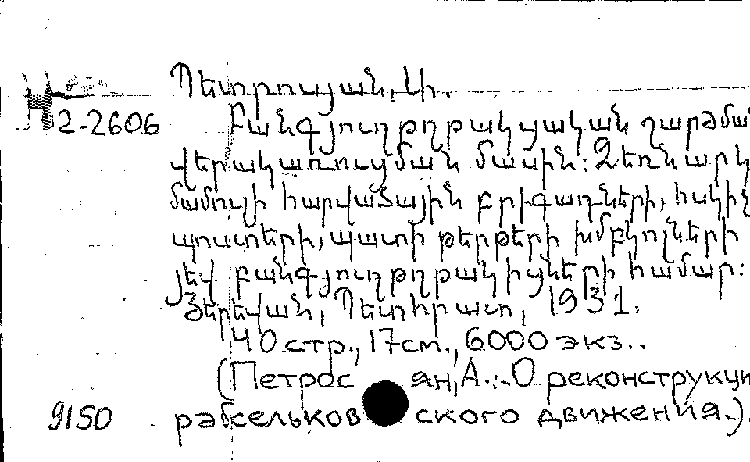 Պետրոսյան, Ա.
2-2606 Բանգյուղթղթակցական շարժման
վերակառուցման մասին: Ձեռնարկ
մամուլի հարվածային բրիգադների, հսկիչ
պոստերի, պատի թերթերի խմբկոլների
յեվ բանգյուղթղթակիցների համար:
Յերեվան, Պետհրատ, 1931.
40 стр., 17 см., 6000 экз..
(Петрос ян, А.. О реконструкци
9150 рабселькоров ского движения.).